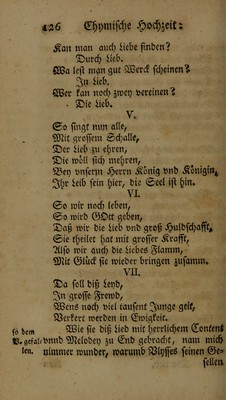 126 Chymische Hochzeit:
Kan man auch Liebe finden?
Durch Lieb.
Wa lest man gut Werck scheinen?
In Lieb.
Wer kan noch zwey vereinen?
Die Lieb.
V.
So singt nun alle,
Mit grossem Schalle,
Der Lieb zu ehren,
Die wöll sich mehren,
Bey vnserm Herrn König vnd Königin,
Ihr Leib sein hier, die Seel ist hin.
VI.
So wir noch leben,
So wird GOtt geben,
Daß wir die Lieb vnd groß Huldschafft,
Sie theilet hat mit grosser Krafft,
Also wir auch die Liebes Flamm,
Mit Glück sie wieder bringen zusamm.
VII.
Da soll diß Leyd,
In grosse Frewd,
Wens noch viel tausent Junge geit,
Verkert werden in Ewigkeit.
so dem Wie sie diß Lied mit herrlichem Content
V. gefal- vnnd Melodey zu End gebracht, nam mich
len. nimmer wunder, warumb Vlysses seinen Ge-
sellen